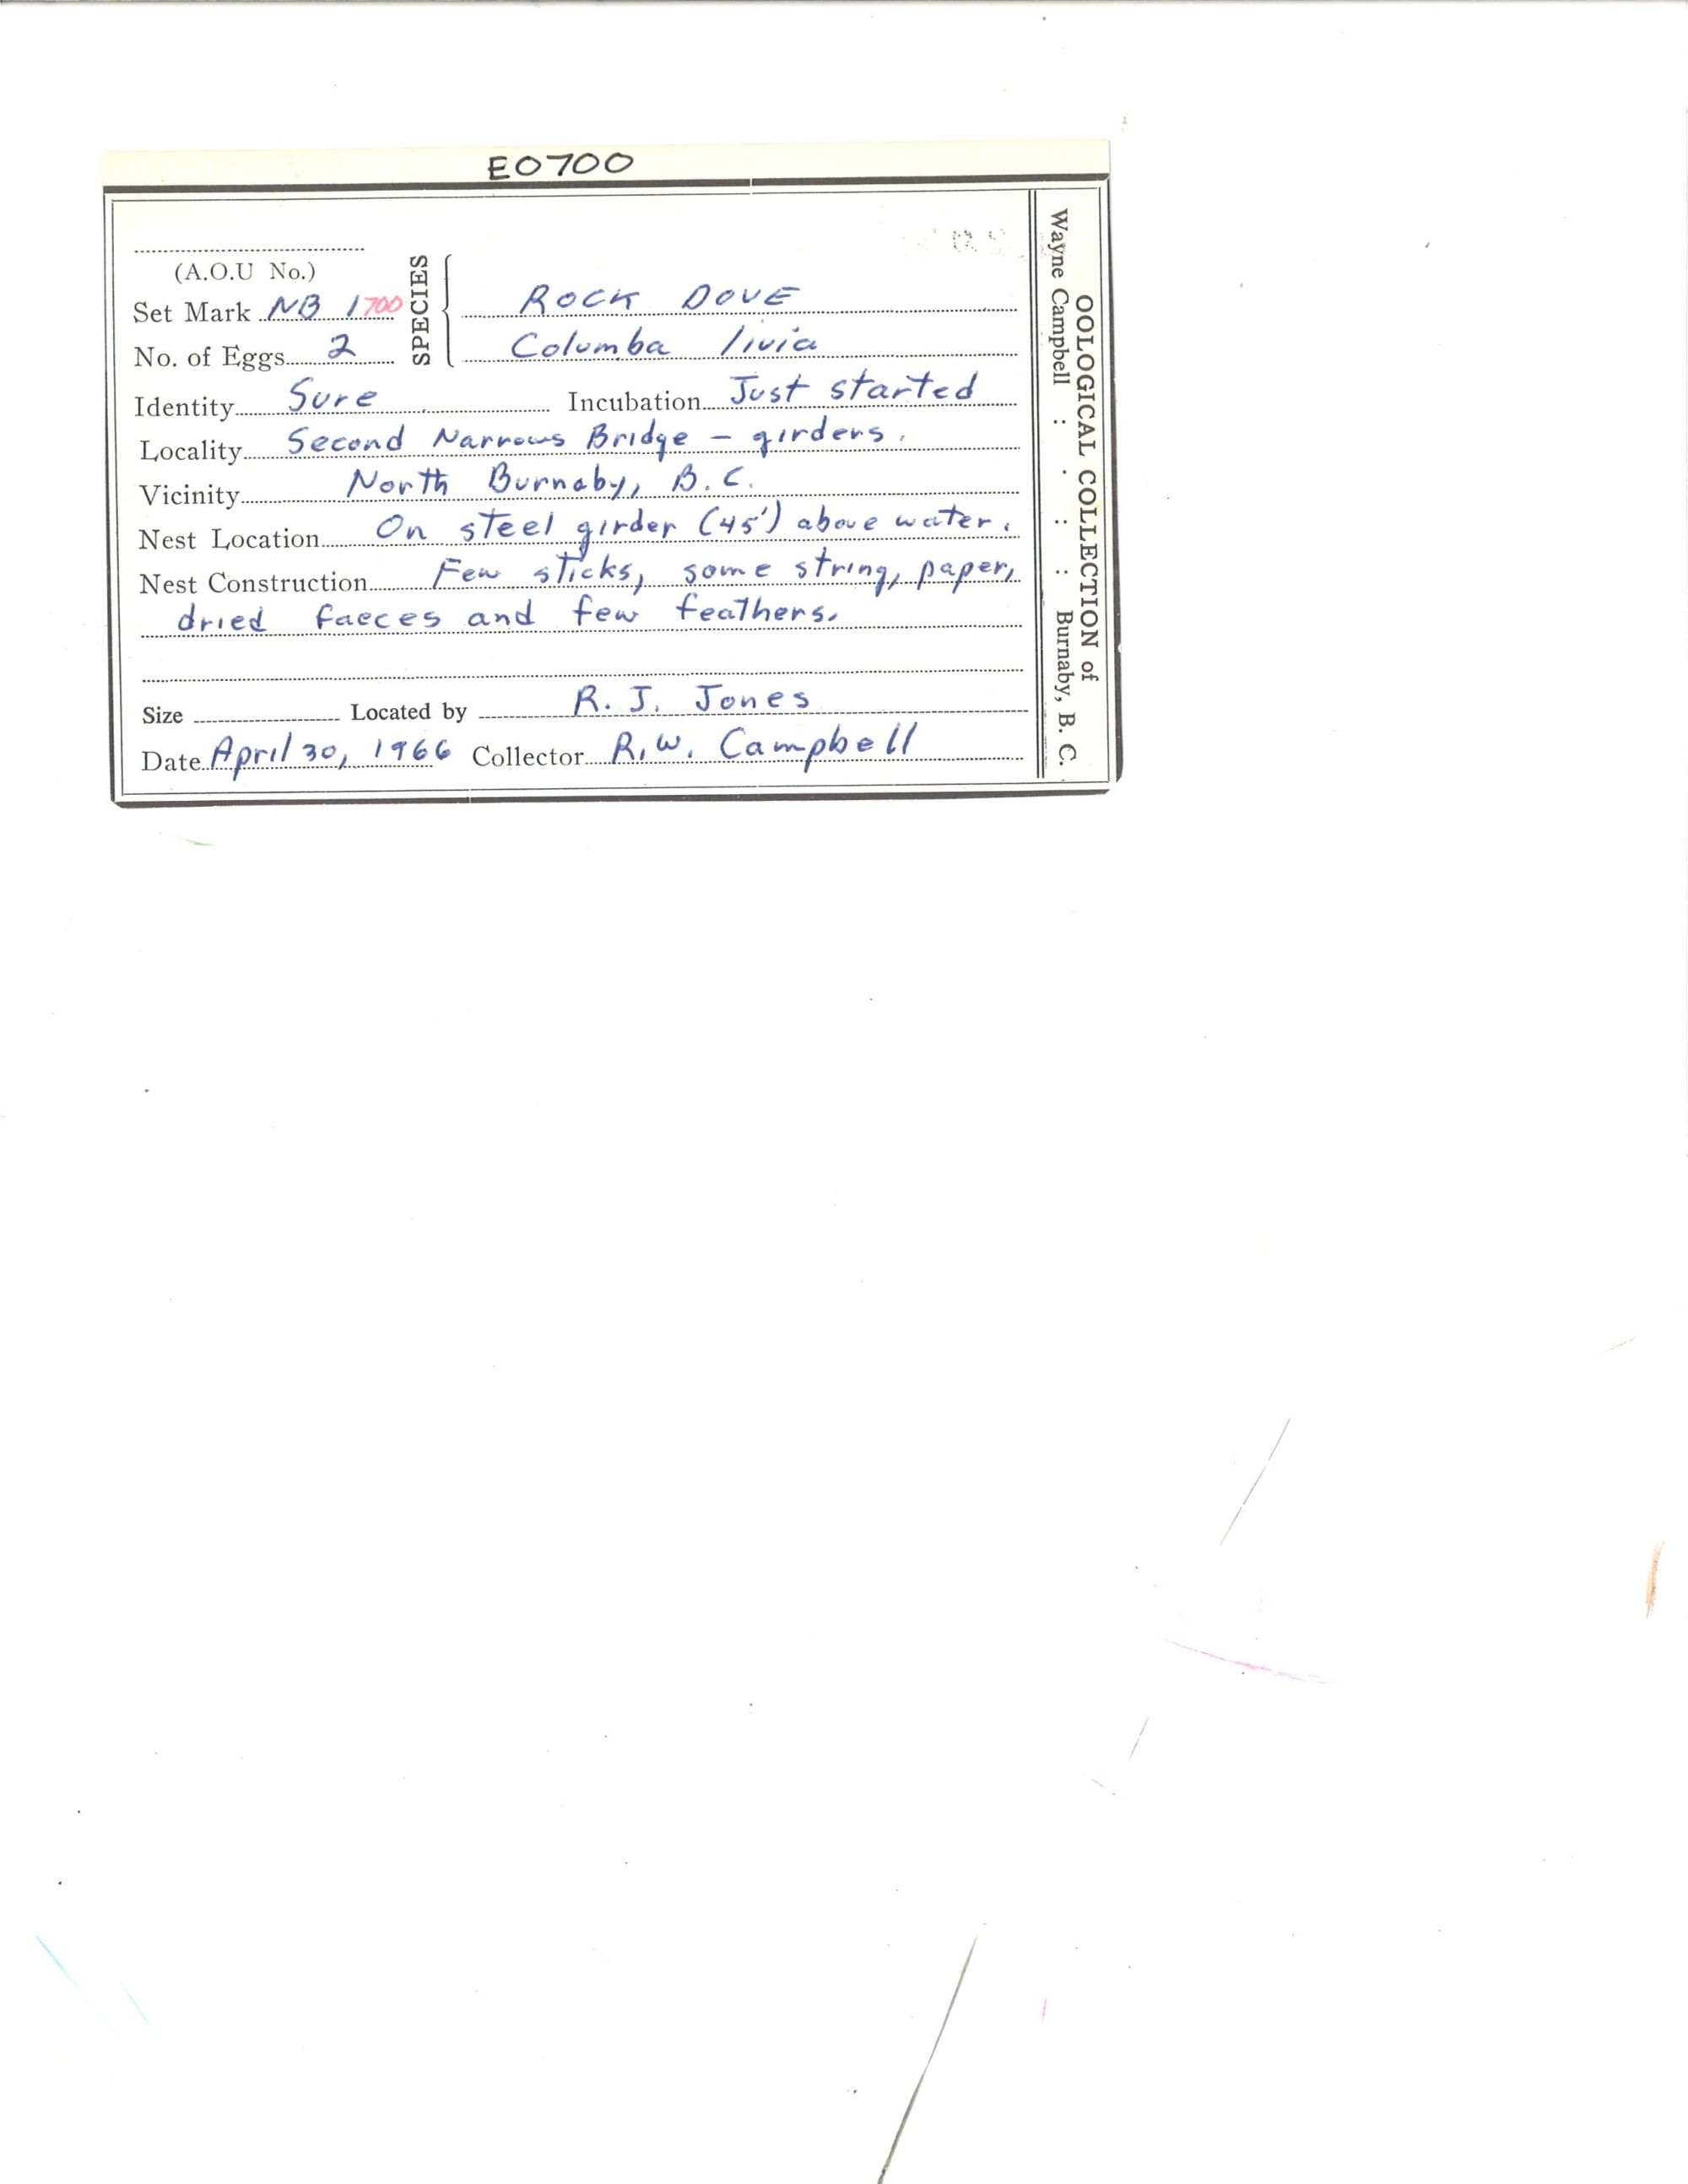 E0700
(A.O.U No.)
Set Mark NB 1700
No. of Eggs 2
SPECIES
ROCK DOVE
Columba livia
Identity Sure Incubation Just started
Locality Second Narrows Bridge - girders.
Vicinity North Burnaby, B.C.
Nest Location On steel girder (45') above water.
Nest Construction Few sticks, some string, paper,
dried faeces and few feathers.
Size Located by R. J. Jones
Date April 30, 1966 Collector R.W. Campbell
OOLOGICAL COLLECTION of
Wayne Campbell : : : Burnaby, B. C.